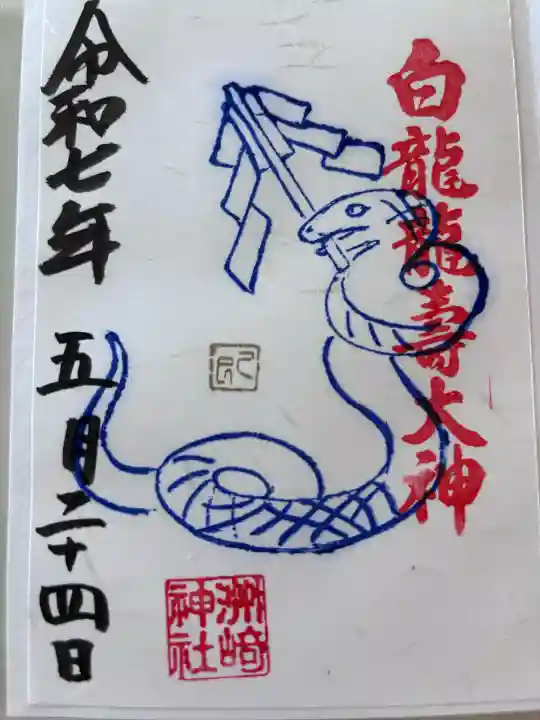 白龍龍壽大神
令和七年 五月二十四日
洲崎
神社